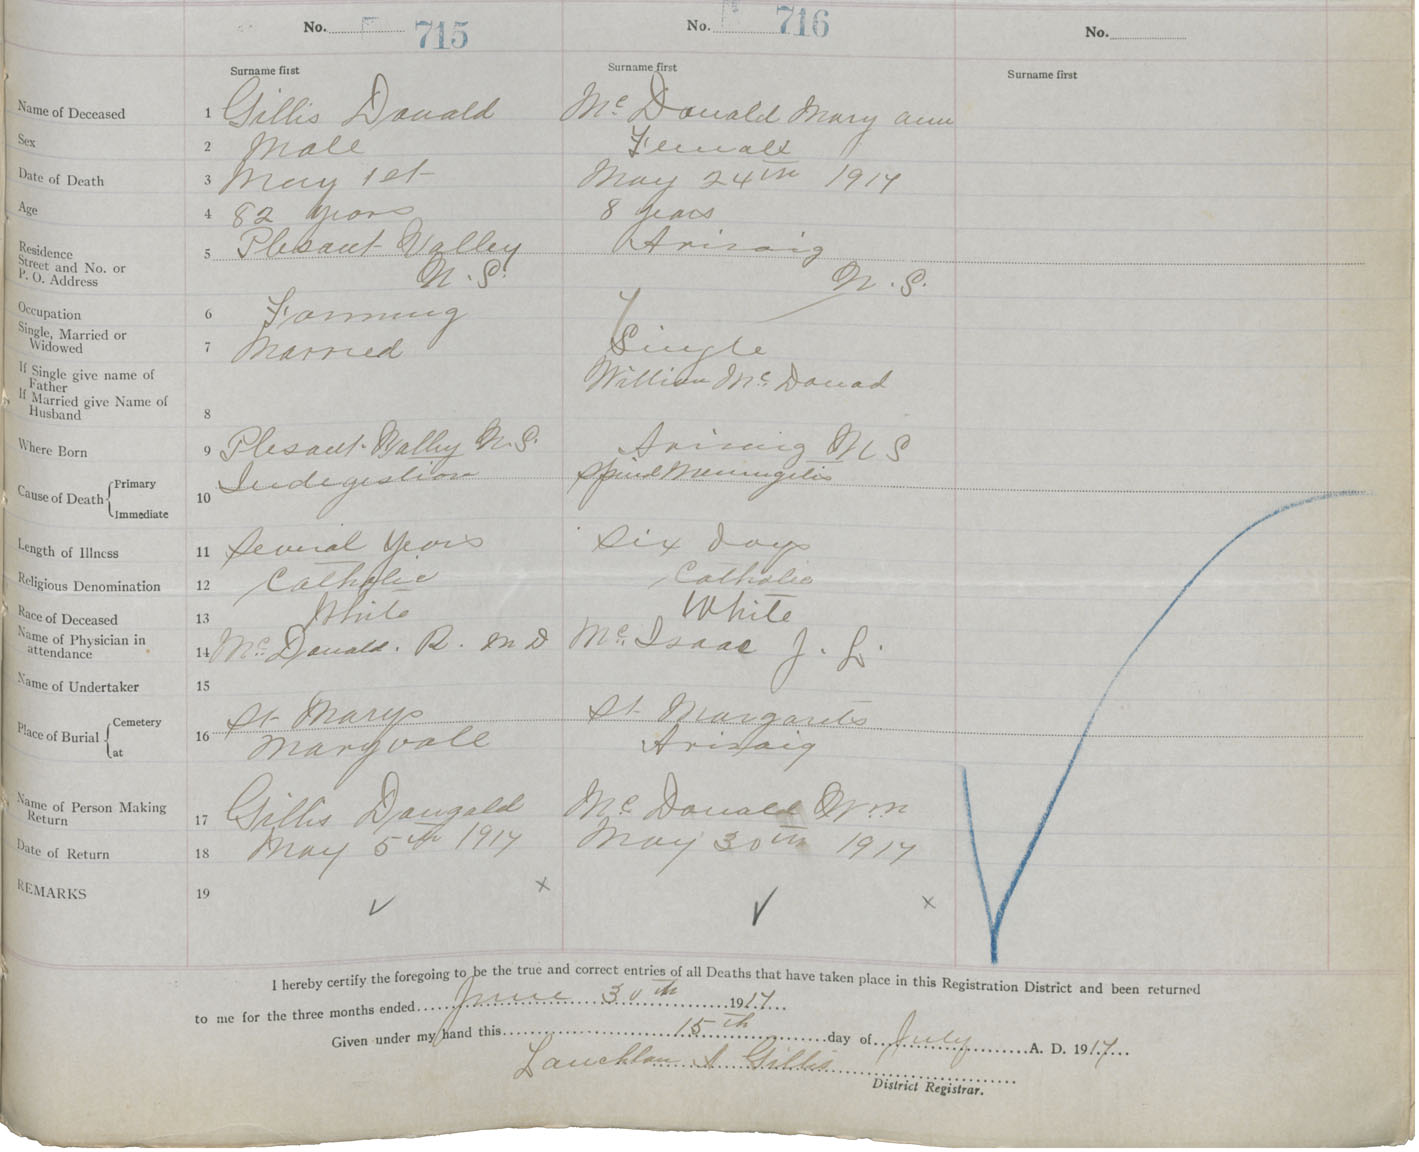 No. 715 No. 716 No.
Surname first Surname first Surname first
Name of Deceased 1 Gillis Donald Mc Donald Mary ann
Sex 2 Male Female
Date of Death 3 May 1st May 24th 1917
Age 4 82 years 8 years
Residence
Street and No. or
P. O. Address 5 Plesant Valley Arisaig
N. S. N. S.
Occupation 6 Farming
Single, Married or
Widowed 7 Married Single
If Single give name of
Father William Mc Donad
If Married give Name of
Husband 8
Where Born 9 Plesant Valley N. S. Arisaig N S
Cause of Death Primary Indegestion Spinal Meningitis
Immediate 10
Length of Illness 11 Several Years Six days
Religious Denomination 12 Catholic Catholic
Race of Deceased 13 White White
Name of Physician in
attendance 14 Mc Donald. R. M D Mc Isaac J. L.
Name of Undertaker 15
Place of Burial Cemetery 16 St Marys St Margarets
at Maryvale Arisaig
Name of Person Making
Return 17 Gillis Dougald Mc Donald Wm
Date of Return 18 May 5th 1917 May 30th 1917
REMARKS 19
I hereby certify the foregoing to be the true and correct entries of all Deaths that have taken place in this Registration District and been returned
to me for the three months ended June 30th 1917
Given under my hand this 15th day of July A. D. 1917
Lauchlan Gillis
District Registrar.